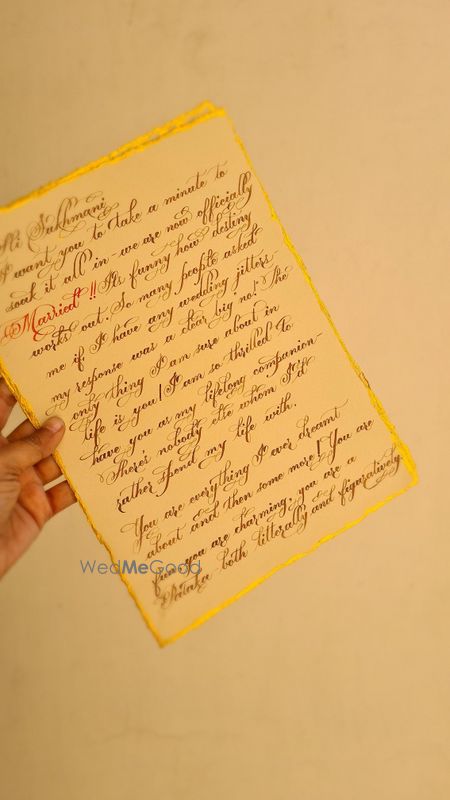 Hi Sukhmani
I want you to take a minute to
soak it all in - we are now officially
Married !! It's funny how destiny
works out. So many people asked
me if I have any wedding jitters
my response was a clear big no! The
only thing I am sure about in
life is you! I am so thrilled to
have you as my lifelong companion
There's nobody else whom I'd
rather spend my life with.
You are everything I ever dreamt
about and then some more! You are
fun, you are charming, you are a
both litterally and figuratively
WedMeGood